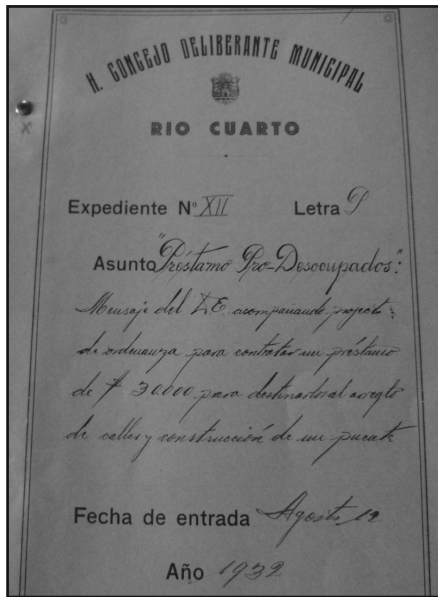 H. CONCEJO DELIBERANTE MUNICIPAL
RIO CUARTO
Expediente Nº XII Letra P
Asunto "Préstamo Pro-Desocupados":
Mensaje del D.E. acompañando proyecto
de ordenanza para contratar un préstamo
de $ 30.000 para destinarlos al arreglo
de calles y construcción de un puente
Fecha de entrada Agosto 12
Año 1932